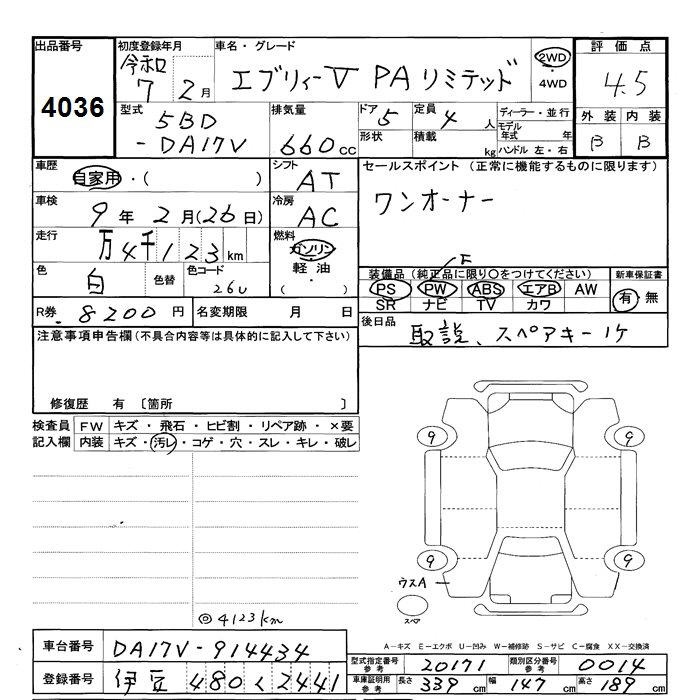 出品番号 初度登録年月 車名・グレード 評価点
4036 令和 7年 2月 エブリィーV PAリミテッド 2WD ・ 4WD 4.5
型式 排気量 ドア 定員 ディーラー・並行 外装 内装
5BD -DA17V 660cc 5 4人 モデル年式 年 B B
形状 積載 kg ハンドル 左・右
車歴 自家用・( ) シフト AT セールスポイント (正常に機能するものに限ります)
車検 9年 2月(26日) 冷房 AC ワンオーナー
走行 万4千123km 燃料 ガソリン 軽油 ( )
色 白 色替 色コード 26U
装備品(純正品に限り○をつけてください) 新車保証書
F
PS PW ABS エアB AW 有・無
SR ナビ TV カワ
R券 8200円 名変期限 月 日 後日品 取説、スペアキー1ケ
注意事項申告欄(不具合内容等は具体的に記入して下さい)
修復歴 有 〔箇所 〕
検査員 FW キズ・飛石・ヒビ割・リペア跡・×要
記入欄 内装 キズ・汚レ・コゲ・穴・スレ・キレ・破レ
9 9
9 9
ウスA
スペア
◎4123km
A-キズ E-エクボ U-凹み W-補修跡 S-サビ C-腐食 XX-交換済
車台番号 DA17V-914434 型式指定番号 参考 20171 類別区分番号 参考 0014
登録番号 伊豆 480 く 2441 車庫証明用 参考 長さ 339cm 幅 147cm 高さ 189cm